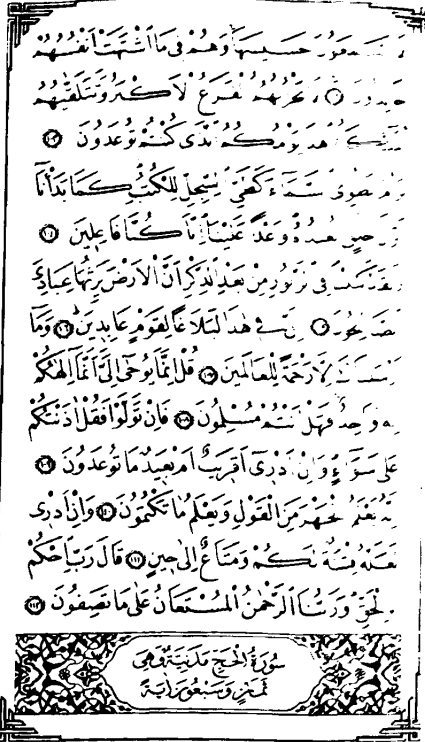 لَا يَسْمَعُونَ حَسِيسَهَا وَهُمْ فِي مَا اشْتَهَتْ اَنْفُسُهُمْ
خَالِدُونَ لَا يَحْزُنُهُمُ الْفَزَعُ الْاَكْبَرُ وَتَتَلَقّٰيهُمُ
الْمَلٰٓئِكَةُ هٰذَا يَوْمُكُمُ الَّذِى كُنْتُمْ تُوعَدُونَ ﴿١٠٣﴾
يَوْمَ نَطْوِى السَّمَآءَ كَطَيِّ السِّجِلِّ لِلْكُتُبِ كَمَا بَدَأْنَآ
اَوَّلَ خَلْقٍ نُعِيدُهُ وَعْدًا عَلَيْنَا اِنَّا كُنَّا فَاعِلِينَ ﴿١٠٤﴾
وَلَقَدْ كَتَبْنَا فِى الزَّبُورِ مِنْ بَعْدِ الذِّكْرِ اَنَّ الْاَرْضَ يَرِثُهَا عِبَادِىَ
الصَّالِحُونَ اِنَّ فِى هٰذَا لَبَلَاغًا لِقَوْمٍ عَابِدِينَ ﴿١٠٦﴾ وَمَآ
اَرْسَلْنَاكَ اِلَّا رَحْمَةً لِلْعَالَمِينَ ﴿١٠٧﴾ قُلْ اِنَّمَا يُوحٰٓى اِلَىَّ اَنَّمَآ اِلٰهُكُمْ
اِلٰهٌ وَاحِدٌ فَهَلْ اَنْتُمْ مُسْلِمُونَ ﴿١٠٨﴾ فَاِنْ تَوَلَّوْا فَقُلْ اٰذَنْتُكُمْ
عَلٰى سَوَآءٍ وَاِنْ اَدْرٖٓى اَقَرِيبٌ اَمْ بَعِيدٌ مَا تُوعَدُونَ ﴿١٠٩﴾
اِنَّهُ يَعْلَمُ الْجَهْرَ مِنَ الْقَوْلِ وَيَعْلَمُ مَا تَكْتُمُونَ ﴿١١٠﴾ وَاِنْ اَدْرِى
لَعَلَّهُ فِتْنَةٌ لَكُمْ وَمَتَاعٌ اِلٰى حِينٍ ﴿١١١﴾ قَالَ رَبِّ احْكُمْ
بِالْحَقِّ وَرَبُّنَا الرَّحْمٰنُ الْمُسْتَعَانُ عَلٰى مَا تَصِفُونَ ﴿١١٢﴾
سُورَةُ الْحَجِّ مَدَنِيَّةٌ وَهِىَ
ثَمَانٍ وَسَبْعُونَ اٰيَةً